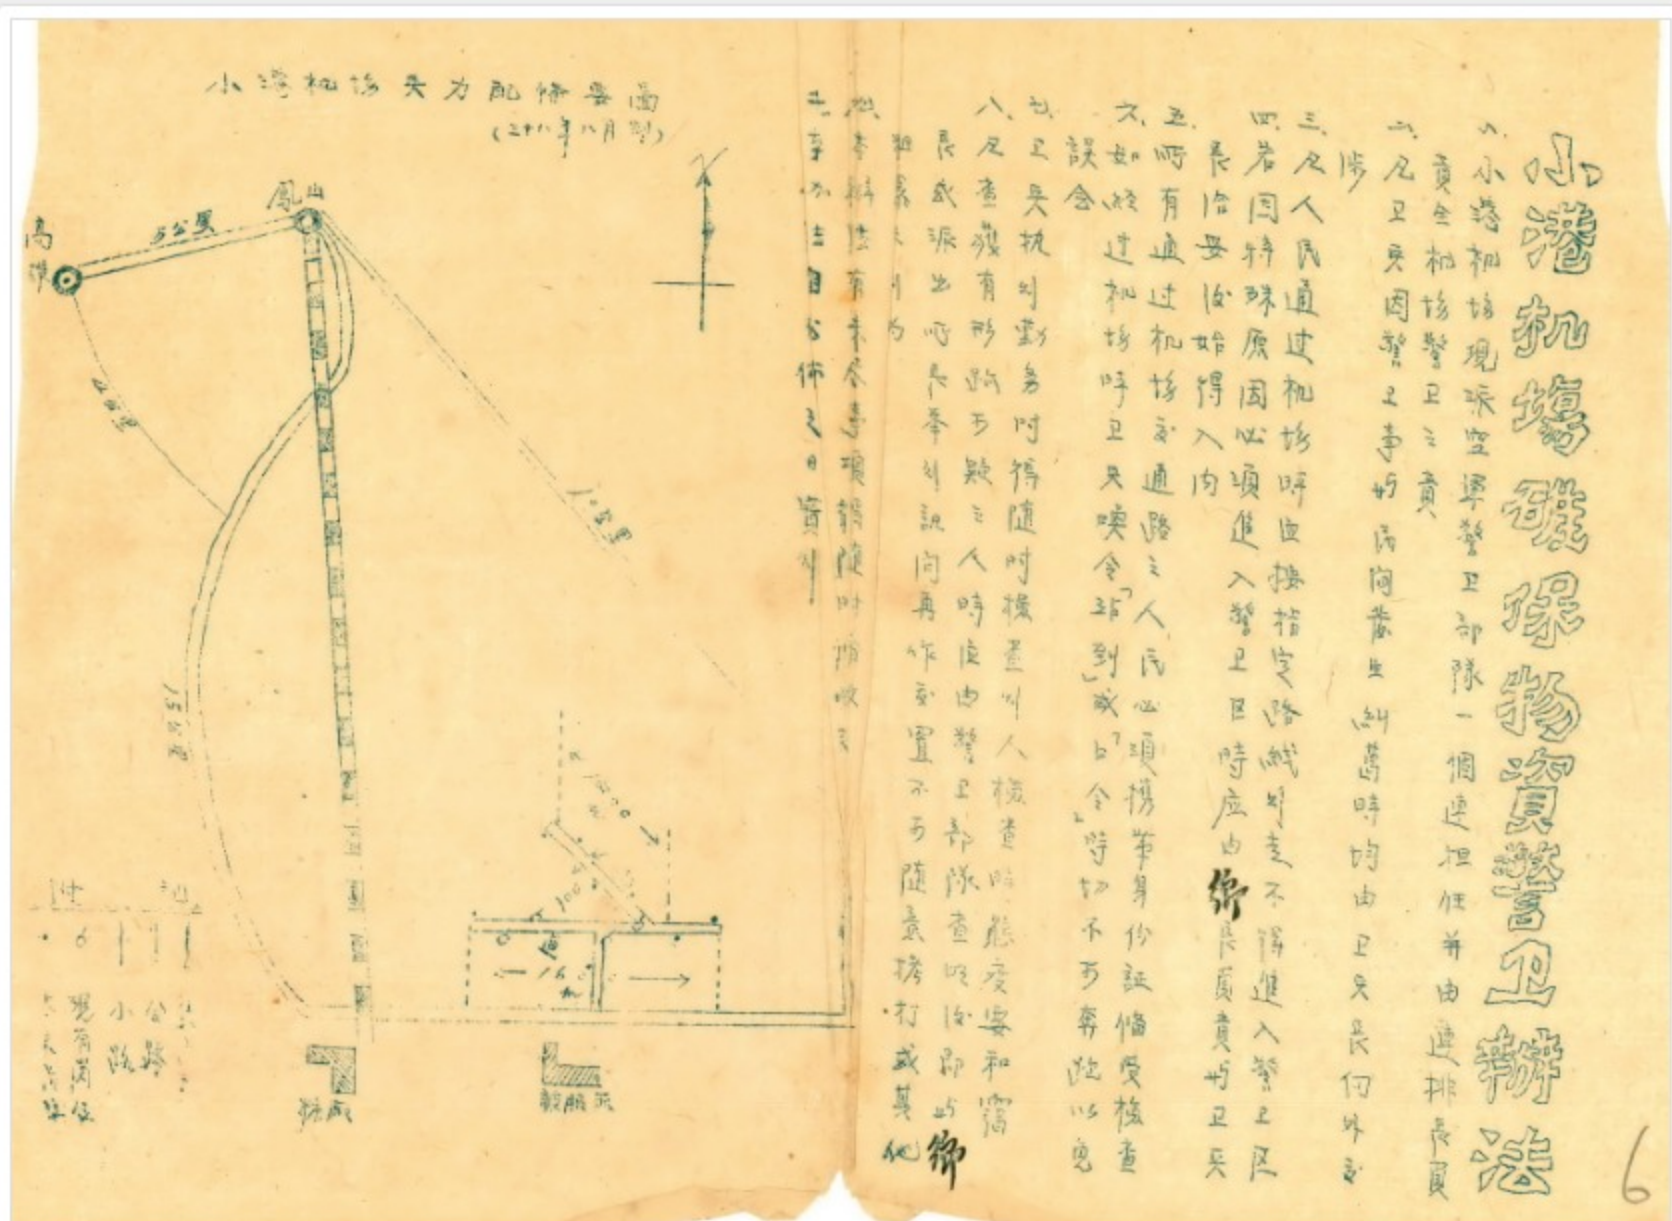 小港机場確保物資警卫辦法
一、小港机場現派空軍警卫部隊一個連担任并由連排長員
責全机場警卫之責
二、凡卫兵因警卫事與民间發生糾葛時均由卫兵長何外交
涉
三、凡人民通过机場時应按指定路綫行走不得進入警卫区
四、若因特殊原因必須進入警卫区時应由鄉長員責與卫兵
長洽妥後始得入内
五、所有通过机場交通路之人民必須携带身份証俻受檢查
六、如經过机場時卫兵喚令「站到」或「口令」時切不可奔跑以免
誤会
七、卫兵执行勤务时得隨时檢查行人檢查时態度要和靄
八、凡查獲有形跡可疑之人時应由警卫部隊查明後即與鄉
長或派出所長举行訊问再作處置不可隨意拷打或其他
行为
本辦法有未尽事項得隨时
本办法自公佈之日實行
小港机場兵力配俻要圖
(三十八年八月 製)
鳳山
高雄
5公里
10公里
15公里
糖廠
附 記
公路
小路
現有崗位
6